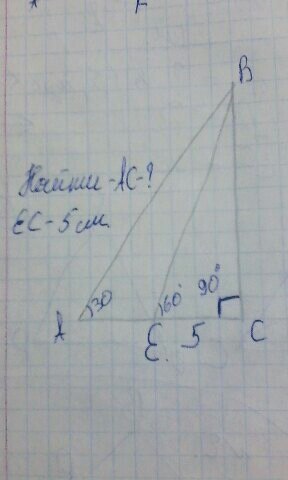 B
Найти - AC-?
EC - 5 см.
30
60°
90°
A
E.
5
C